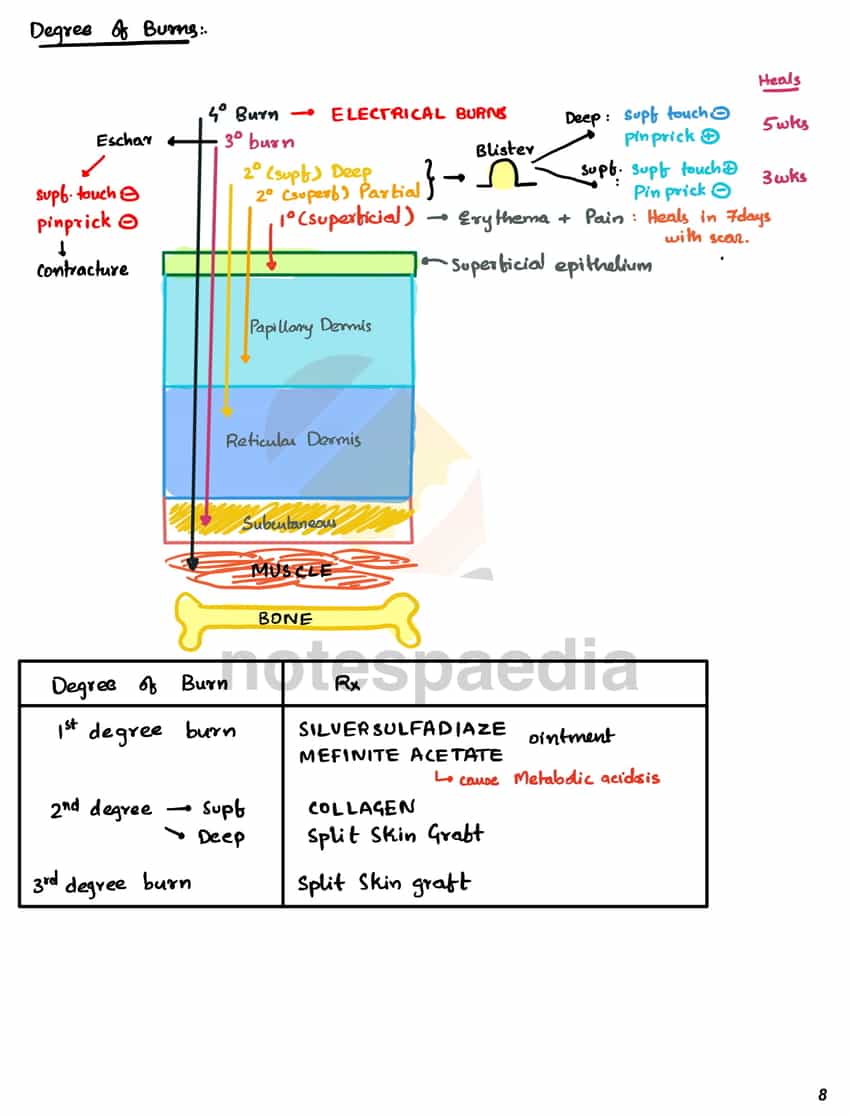 Degree of Burns:.
Heals
4° Burn → ELECTRICAL BURNS
Eschar ← 3° burn
supf. touch ⊖
pinprick ⊖
↓
Contracture
2° (supf) Deep
2° (superf) Partial
} → Blister
Deep : supf touch ⊖
pinprick ⊕
5wks
supf. : supf touch ⊕
Pin prick ⊖
3wks
1° (superficial) → Erythema + Pain : Heals in 7days
with scar.
Superficial epithelium
Papillary Dermis
Reticular Dermis
Subcutaneous
MUSCLE
BONE
notespaedia
Degree of Burn Rx
1st degree burn SILVERSULFADIAZE
MEFINITE ACETATE ointment
↳ cause Metabolic acidosis
2nd degree → Supf COLLAGEN
↘ Deep Split Skin Graft
3rd degree burn Split Skin graft
8